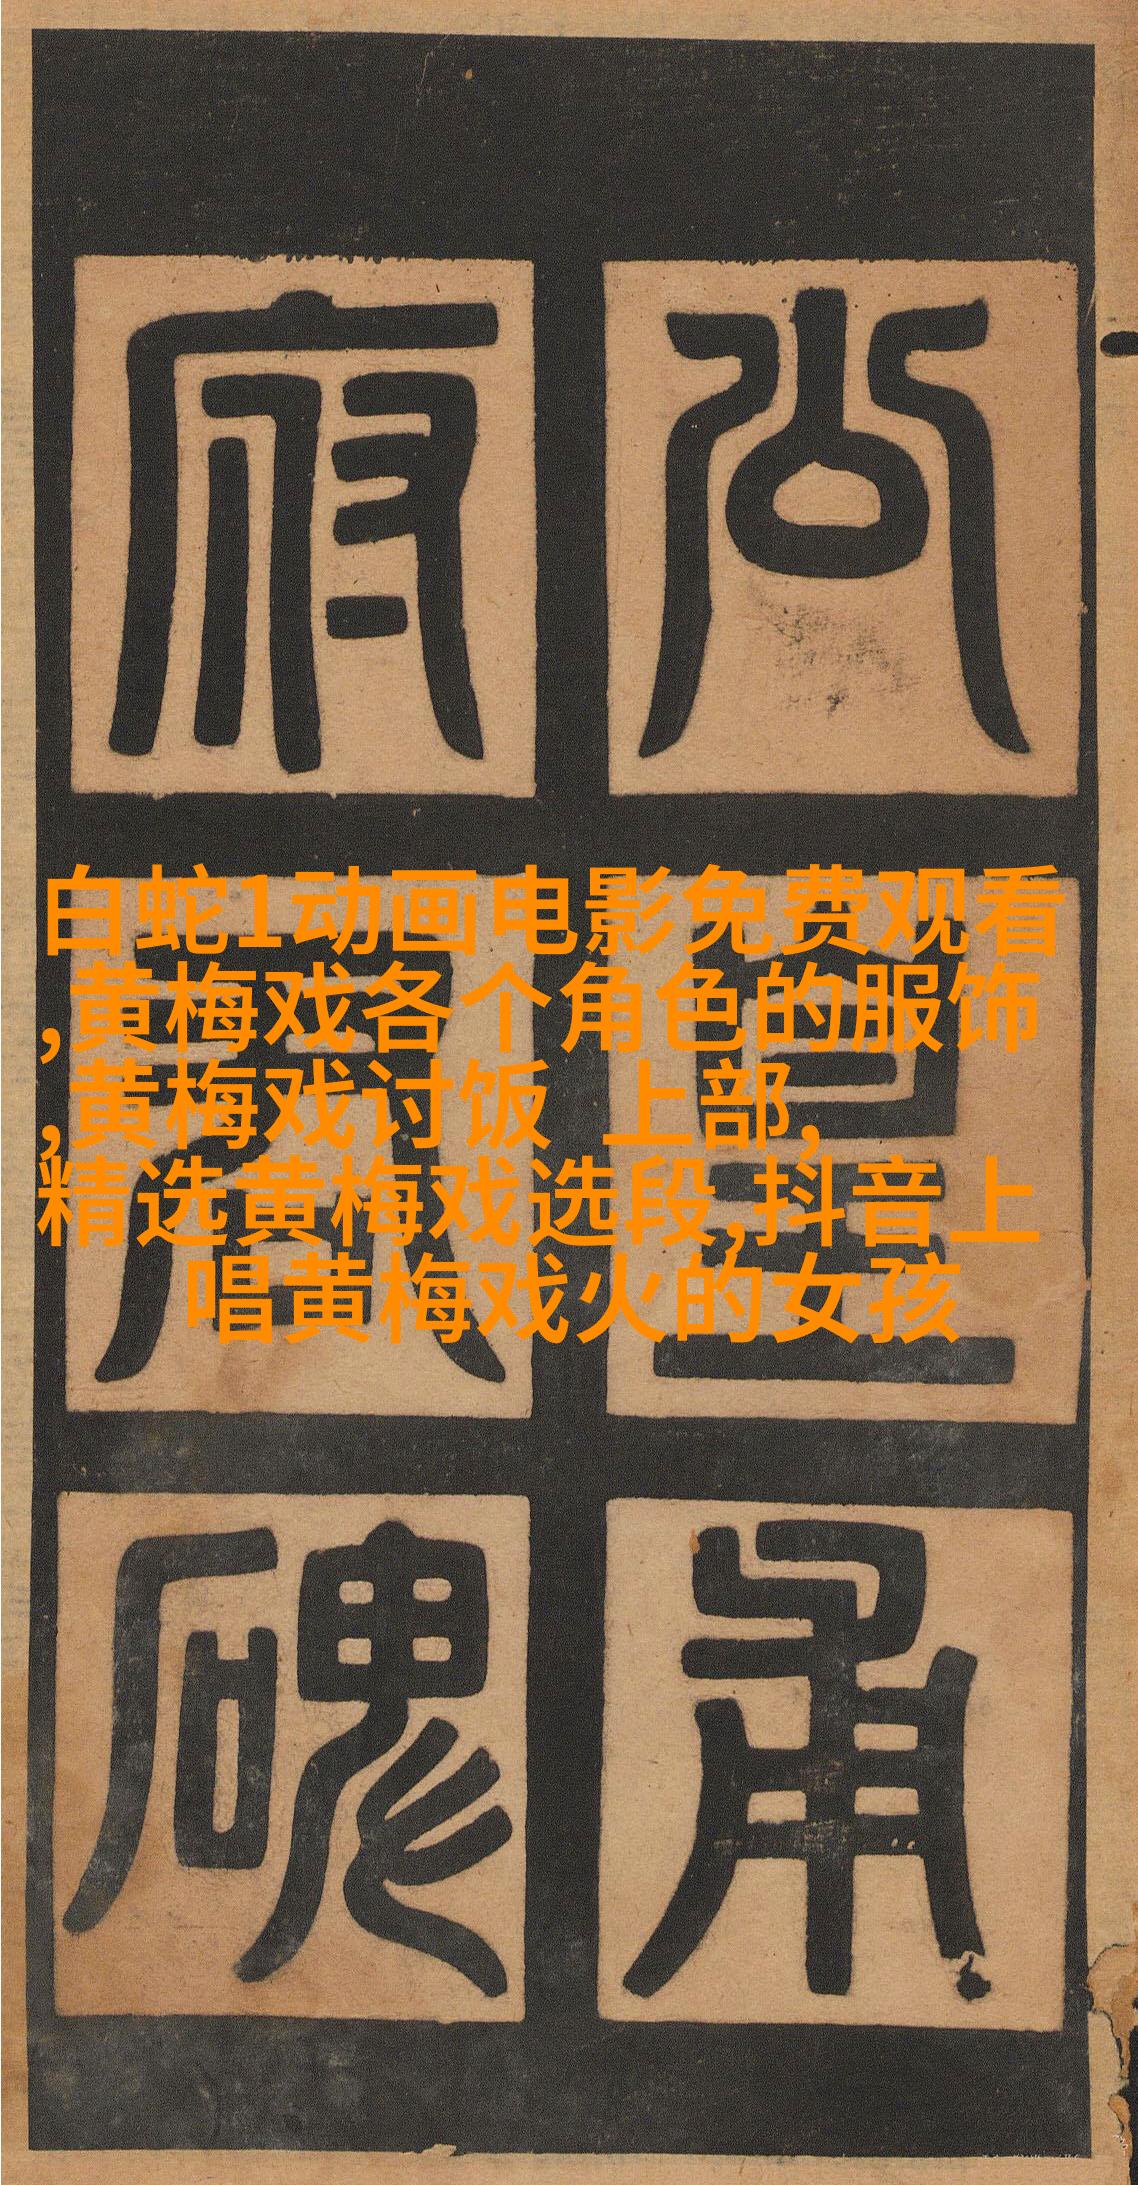 公皇甫
府君碑
白蛇1动画电影免费观看
,黄梅戏各个角色的服饰
,黄梅戏讨饭 上部,
精选黄梅戏选段,抖音上
唱黄梅戏火的女孩